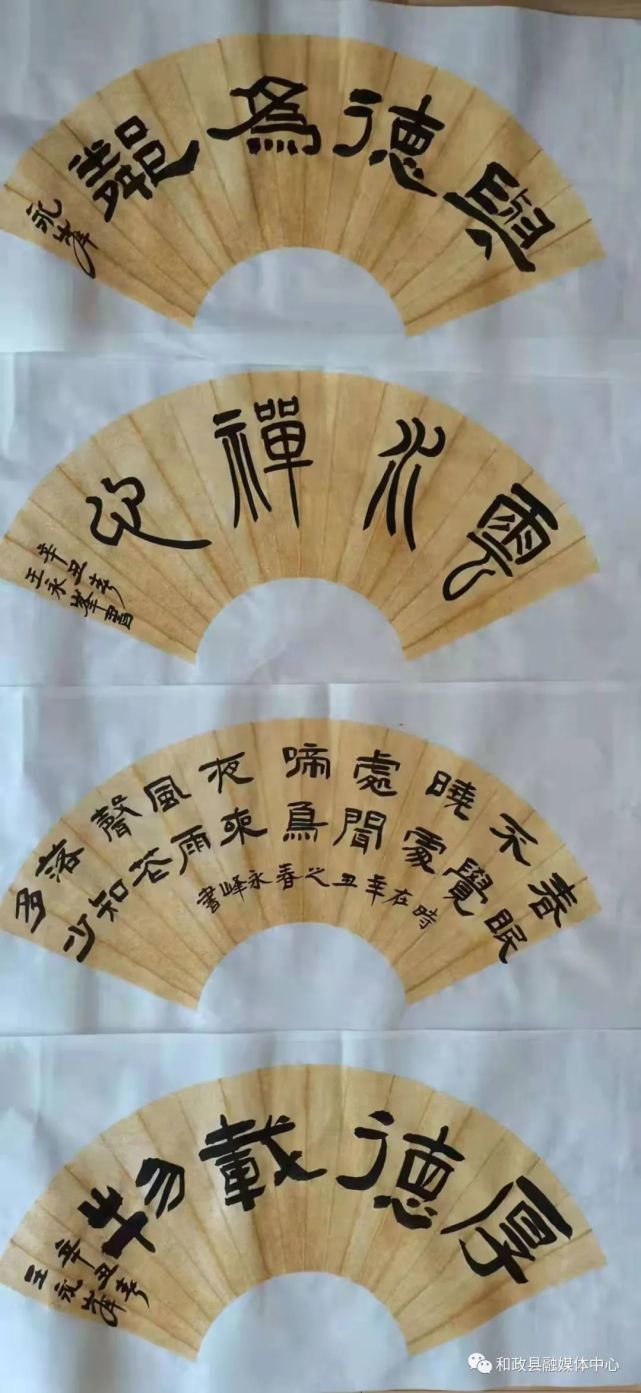 與德為鄰
永峯
雲水禪心
辛丑春
王永峯書
春眠
不覺
曉處
處聞
啼鳥
夜來
風雨
聲花
落知
多少
時在辛丑之春永峰書
厚德載物
辛丑春
王永峯
和政县融媒体中心